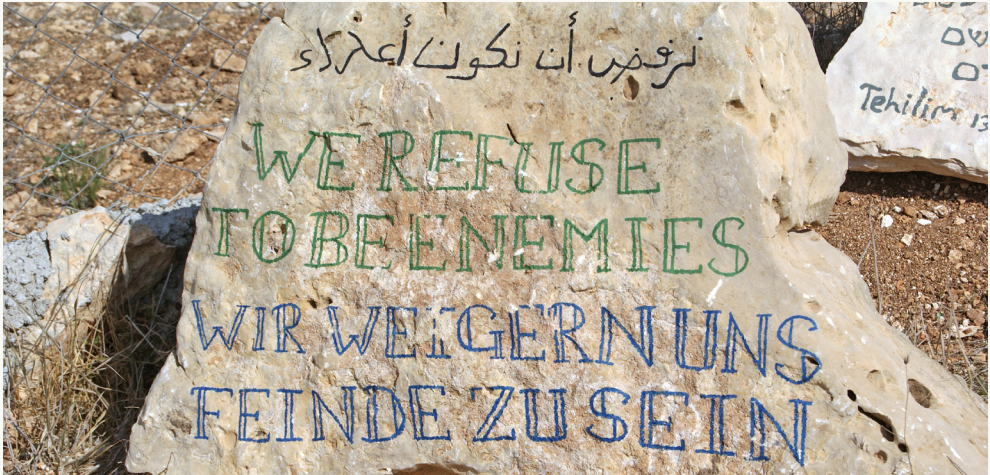 نرفض أن نكون أعداء
WE REFUSE
TO BE ENEMIES
WIR WEIGERN UNS
FEINDE ZU SEIN
Tehilim 13